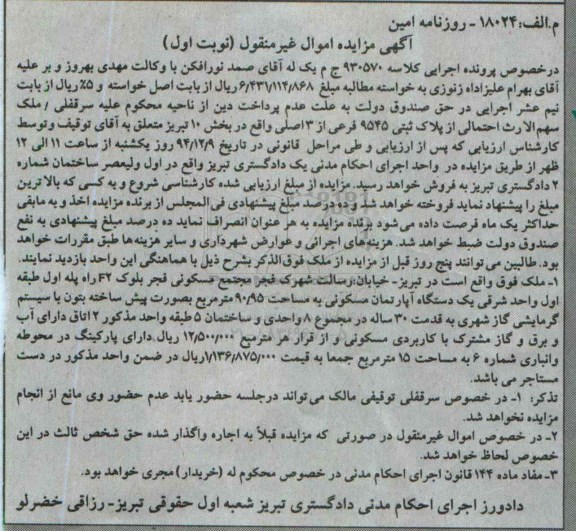 م.الف:۱۸۰۲۴ - روزنامه امین
آگهی مزایده اموال غیرمنقول (نوبت اول)
درخصوص پرونده اجرایی کلاسه ۹۳۰۵۷۰ ج م یک له آقای صمد نورافکن با وکالت مهدی بهروز و بر علیه
آقای بهرام علیزاداه زنوزی به خواسته مطالبه مبلغ ۶/۴۳۱/۱۱۴/۸۶۸ ریال از بابت اصل خواسته و ۵٪ ریال از بابت
نیم عشر اجرایی در حق صندوق دولت به علت عدم پرداخت دین از ناحیه محکوم علیه سرقفلی / ملک
سهم‌الارث احتمالی از پلاک ثبتی ۹۵۴۵ فرعی از ۳ اصلی واقع در بخش ۱۰ تبریز متعلق به آقای توقیف وتوسط
کارشناس ارزیابی که پس از ارزیابی و طی مراحل قانونی در تاریخ ۹۴/۱۲/۹ روز یکشنبه از ساعت ۱۱ الی ۱۲
ظهر از طریق مزایده در واحد اجرای احکام مدنی یک دادگستری تبریز واقع در اول ولیعصر ساختمان شماره
۲ دادگستری تبریز به فروش خواهد رسید. مزایده از مبلغ ارزیابی شده کارشناسی شروع و به کسی که بالاترین
مبلغ را پیشنهاد نماید فروخته خواهد شد و ده درصد مبلغ پیشنهادی فی المجلس از برنده مزایده اخذ و به مابقی
حداکثر یک ماه فرصت داده می‌شود برنده مزایده به هر عنوان انصراف نماید ده درصد مبلغ پیشنهادی به نفع
صندوق دولت ضبط خواهد شد. هزینه‌های اجرائی و عوارض شهرداری و سایر هزینه‌ها طبق مقررات خواهد
بود. طالبین می‌توانند پنج روز قبل از مزایده از ملک فوق‌الذکر بشرح ذیل با هماهنگی این واحد بازدید نمایند.
۱- ملک فوق واقع است در تبریز - خیابان رسالت شهرک فجر مجتمع مسکونی فجر بلوک F۲ راه پله اول طبقه
اول واحد شرقی یک دستگاه آپارتمان مسکونی به مساحت ۹۰/۹۵ مترمربع بصورت پیش ساخته بتون با سیستم
گرمایشی گاز شهری به قدمت ۳۰ ساله در مجموع ۸ واحدی و ساختمان ۵ طبقه واحد مذکور ۲ اتاق دارای آب
و برق و گاز مشترک با کاربردی مسکونی و از قرار هر مترمربع ۱۲/۵۰۰/۰۰۰ ریال دارای پارکینگ در محوطه
وانباری شماره ۶ به مساحت ۱۵ مترمربع جمعا به قیمت ۱/۱۳۶/۸۷۵/۰۰۰ ریال در ضمن واحد مذکور در دست
مستاجر می باشد.
تذکر: ۱- در خصوص سرقفلی توقیفی مالک می‌تواند درجلسه حضور یابد عدم حضور وی مانع از انجام
مزایده نخواهد شد.
۲- در خصوص اموال غیرمنقول در صورتی که مزایده قبلاً به اجاره واگذار شده حق شخص ثالث در این
خصوص لحاظ خواهد شد.
۳- مفاد ماده ۱۴۴ قانون اجرای احکام مدنی در خصوص محکوم له (خریدار) مجری خواهد بود.
دادورز اجرای احکام مدنی دادگستری تبریز شعبه اول حقوقی تبریز- رزاقی خضرلو